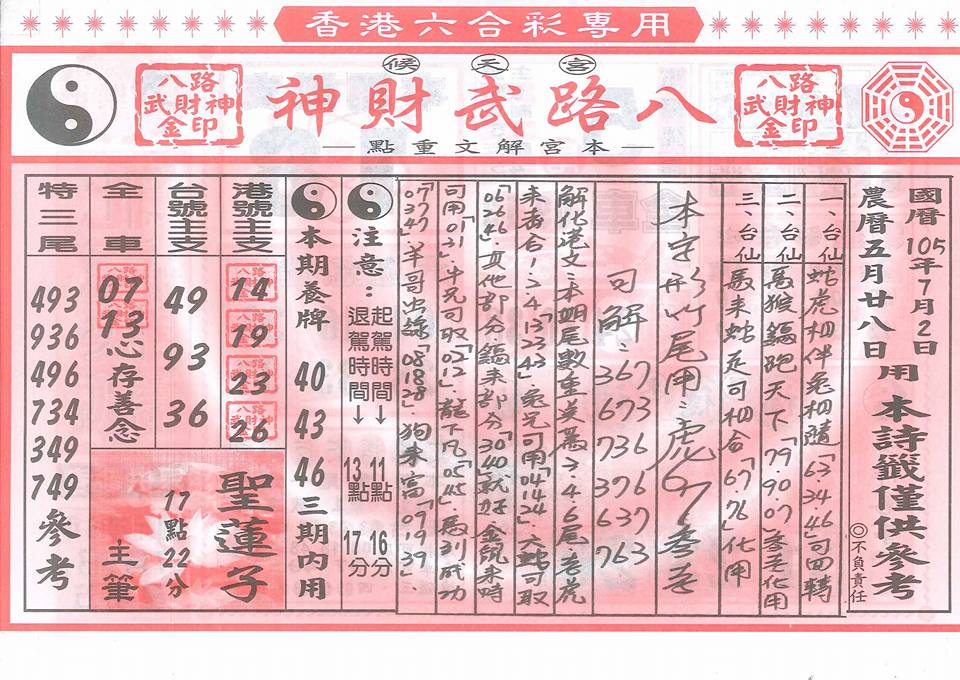 香港六合彩専用
宮天候
八路武財神
八路
武財神
金印
八路
武財神
金印
—本宮解文重點—
國曆105年7月2日
農曆五月廿八日
用本詩籤僅供參考
◎不負責任
一、台仙 蛇虎相伴兔相隨「63.34.46」可回轉
二、台仙 馬猴鷄跑天下「79.90.07」參考化用
三、台仙 馬來蛇走可相合「67.76」化用
本字形竹尾用:虎67參考
司解:367 673 736 376 637 763
解化港文:本期尾數重美為2.4.6尾老虎
來者合1.2.4「13.23.43」兔兄可用「04.14.24」大蛇可取
「06.26.46」其他部分鷄來部分「30.40就好」金龍來時
司用「01.31」牛兄可取「02.12」龍下凡「05.45」馬到成功
「07.47」羊哥出線「08.18.28」狗來富「09.19.39」
注意:
起駕時間→11點16分
退駕時間→13點17分
本期養牌 40 43 46 三期內用
港號主支
14
19
23
26
台號主支
49
93
36
金車
07
13
心存善念
特三尾
493
936
496
734
349
749
參考
聖蓮子
17點22分
主筆